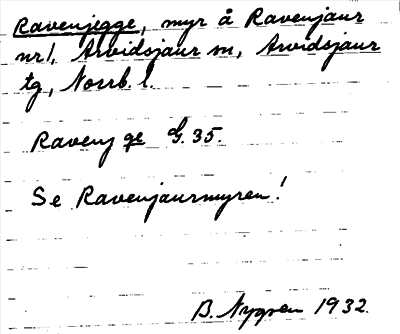 Ravenjegge, myr å Ravenjaur
nr 1, Arvidsjaur sn, Arvidsjaur
tg, Norrb. l.
Ravenj ge G. 35.
Se Ravenjaurmyren!
B. Nygren 1932.